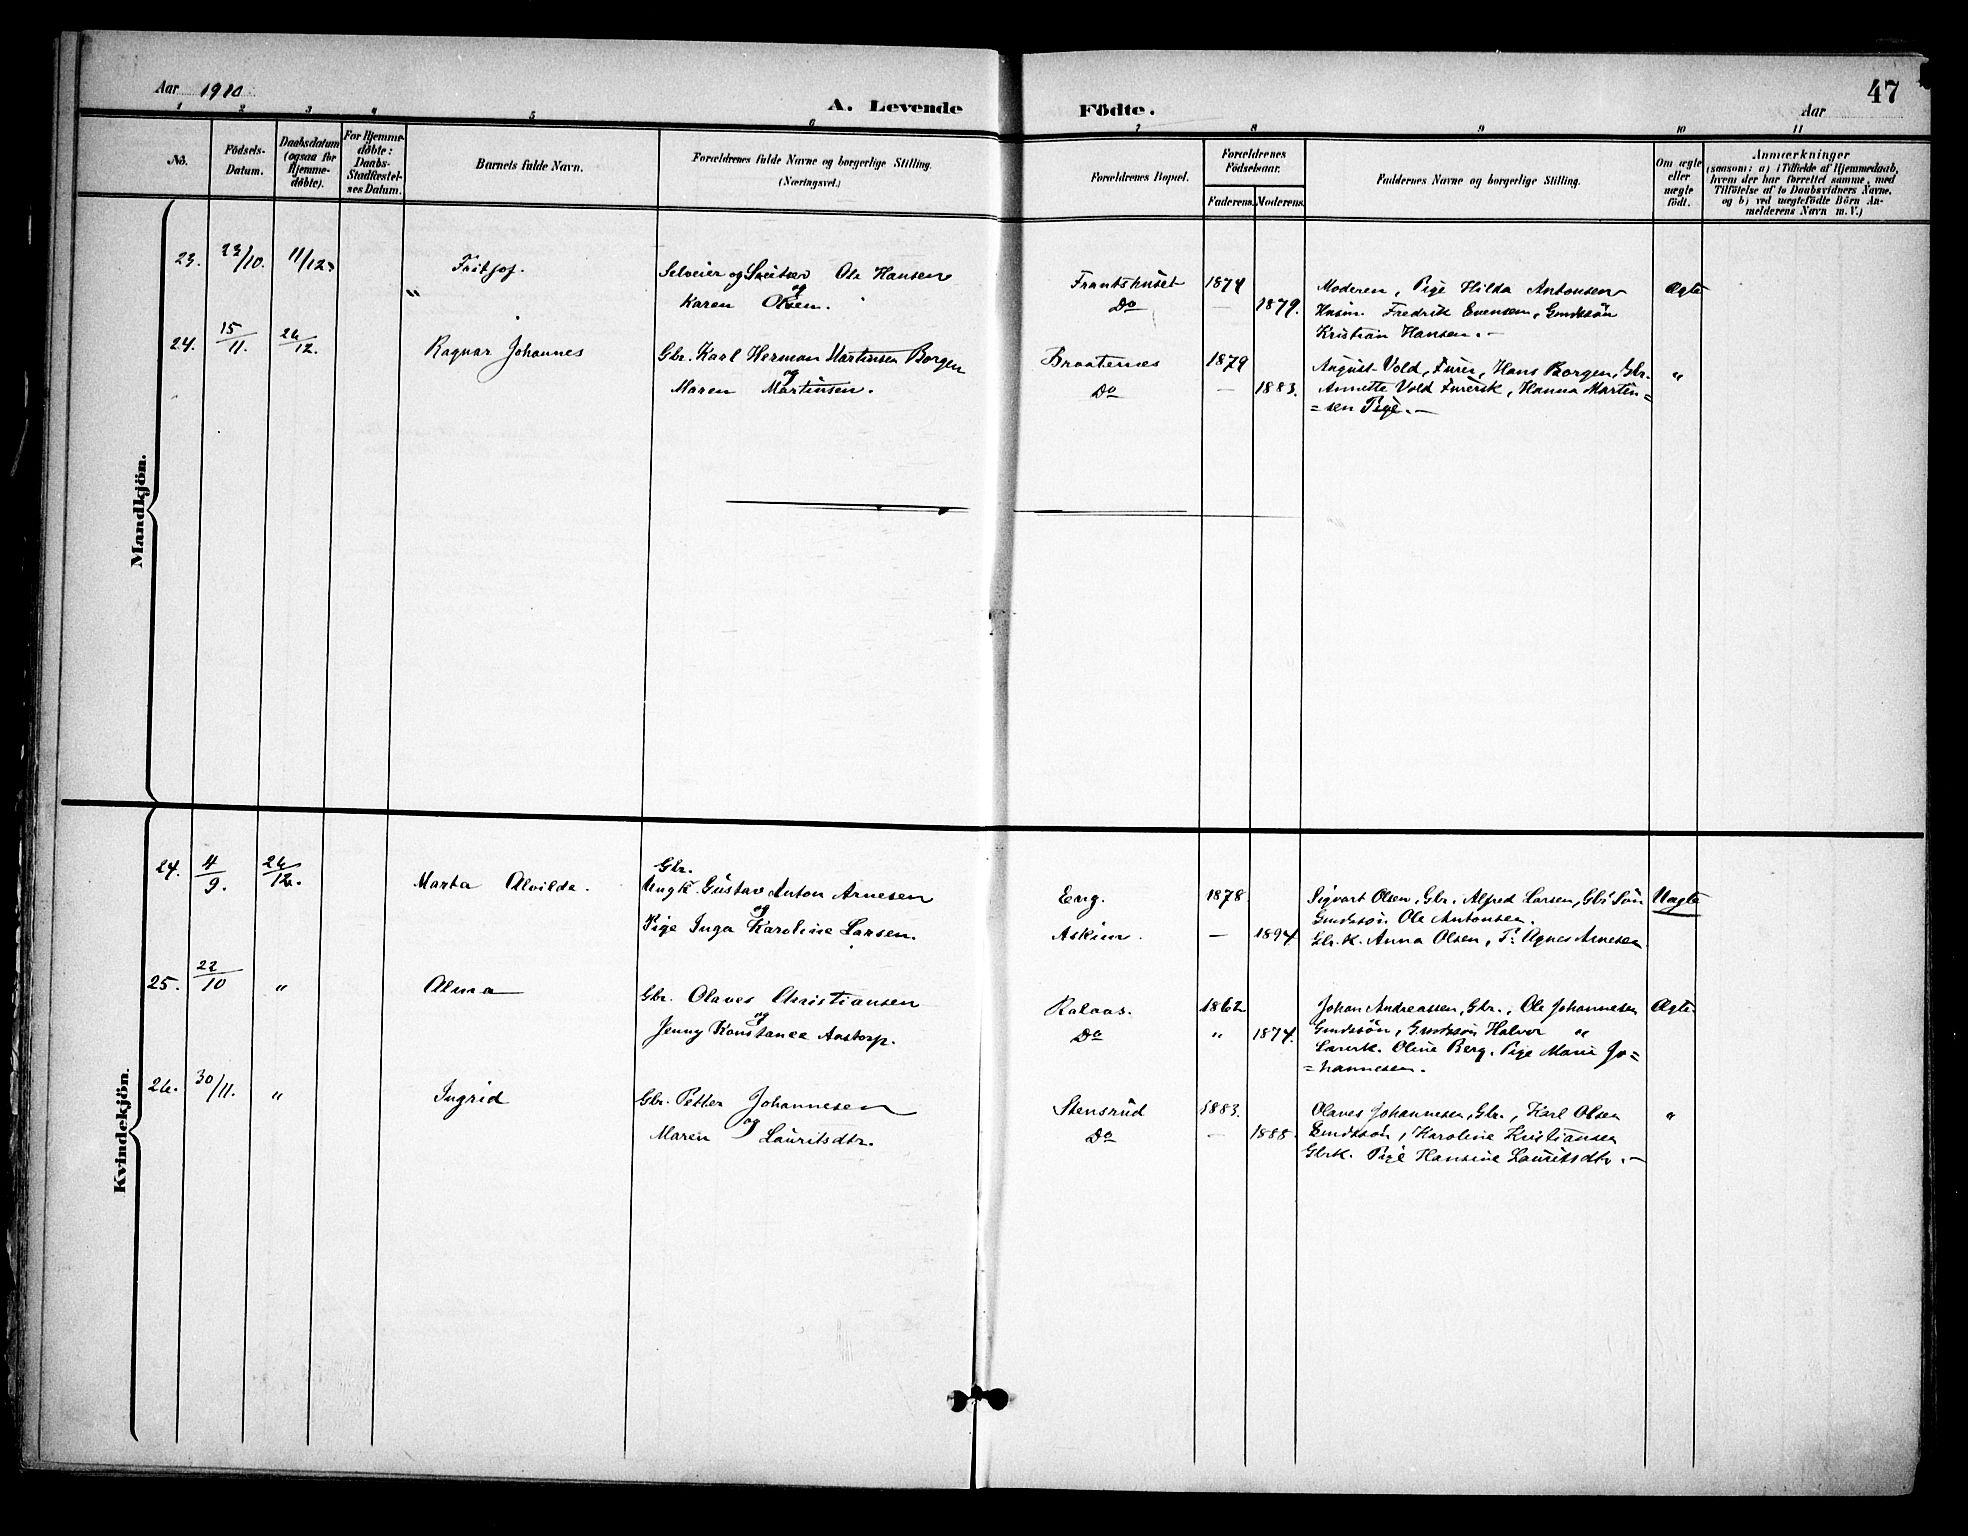 Aar 1910
A. Levende Födte.
Aar
47
1 2 3 4 5 6 7 8 9 10 11
No.
Födsels-Datum.
Daabsdatum (ogsaa for Hjemme-døbte).
For Hjemme-døbte: Daabs-Stadfæstel-ses Datum.
Barnets fulde Navn.
Forældrenes fulde Navne og borgerlige Stilling.
(Næringsvei.)
Forældrenes Bopæl.
Forældrenes Födselsaar.
Faderens. Moderens.
Faddernes Navne og borgerlige Stilling.
Om ægte eller uægte født.
Anmærkninger
(saasom: a) i Tilfælde af Hjemmedaab,
hvem der har forrettet samme, med
Tilføielse af to Daabsvidners Navne,
og b) ved uægtefödte Börn An-
melderens Navn m. V.)
Mandkjön.
23. 22/10. 11/12 Fritjof. Selveier og Ole Hansen Frantshuset 1874 Moderen, Pige Hilda Antonsen Ægte
" og
Karen Olsen. Do — 1879. Husm. Fredrik Evensen, Gmdssön
Kristian Hansen. —
24. 15/11. 26/12. Ragnar Johannes Gbr. Karl Herman Martinsen Borgen Braaternes 1879 August Vold, Furer, Hans Borgen, Gbr. "
og
Maren Martinsen. Do — 1883. Annette Vold Furersk, Hanna Martin=
=sen Pige. —
Kvindekjön.
24. 4/9. 26/12. Marta Alvilde. Gbr.
Ungk. Gustav Anton Arnesen Eng. 1878. Sigvart Olsen, Gbr. Alfred Larsen, Gbr Sön Uægte
og Gmdssön Ole Antonsen.
Pige Inga Karoline Larsen. Askim. — 1894. Gbr.k. Anna Olsen, P: Agnes Arnesen
25. 22/10 " Alma Gbr. Olaves Christiansen Kalaas. 1862 Johan Andreassen, Gbr., Ole Johannesen Ægte.
og
Jenny Konstance Aastorp. Do " 1874. Gmdssön, Gmdssön Halvor "
Lærerk. Oline Berg. Pige Marie Jo=
=hannesen.
26. 30/11. " Ingrid Gbr. Petter Johannesen Stensrud 1883. Olaves Johannesen, Gbr., Karl Olsen "
og
Maren Lauritsdtr. Do — 1888. Gmdssön, Karoline Kristiansen
Gbrk. Pige Hansine Lauritsdtr. —